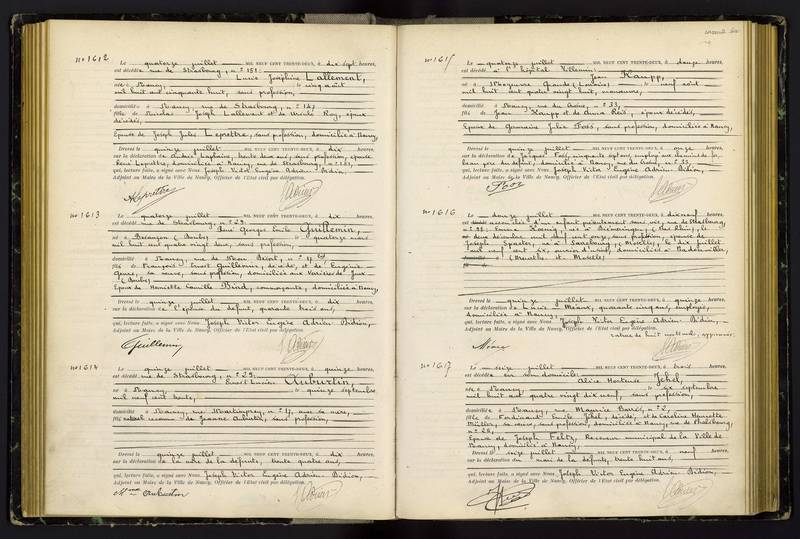 n° 1612
Le quatorze juillet MIL NEUF CENT TRENTE-DEUX, à dix sept heures,
est décédée rue de Strasbourg, n° 151:
Lucie Joséphine Lallement,
née à Nancy, le cinq août
mil huit cent cinquante huit, sans profession,
domiciliée à Nancy, rue de Strasbourg, n°
fille de Nicolas Joseph Lallement et de Ursule Roy, époux
décédés,
Epouse de Joseph Jules Leprêtre, sans profession, domicilié à Nancy,
Dressé le quinze juillet MIL NEUF CENT TRENTE-DEUX, à dix heures,
sur la déclaration de trente deux ans, sans profession, épouse
Leprêtre, domiciliée à Nancy, rue de Strasbourg,
qui, lecture faite, a signé avec Nous Joseph Victor Eugène Adrien Bidion,
Adjoint au Maire de la Ville de Nancy, Officier de l'Etat civil par délégation.
n° 1613
Le quatorze juillet MIL NEUF CENT TRENTE-DEUX, à dix heures,
est décédé rue de Strasbourg, n° 29:
René Georges Emile Guillemin,
né à Besançon (Doubs) le quatorze mars
mil huit cent quatre vingt deux, sans profession,
domicilié à Nancy, rue de
fils de François Ernest Guillemin, décédé, et de Eugénie
sa veuve, sans profession, domiciliée aux Verrières de Joux
(Doubs)
Epoux de Henriette Camille Bind, commerçante, domiciliée à Nancy,
Dressé le quinze juillet MIL NEUF CENT TRENTE-DEUX, à dix heures,
sur la déclaration de l'épouse du défunt, quarante trois ans,
qui, lecture faite, a signé avec Nous Joseph Victor Eugène Adrien Bidion,
Adjoint au Maire de la Ville de Nancy, Officier de l'Etat civil par délégation.
Guillemin
n° 1614
Le quinze juillet MIL NEUF CENT TRENTE-DEUX, à quinze heures,
est décédé rue de Strasbourg, n° 29:
Lucien Auburtin,
né à Nancy, le quinze septembre
mil neuf cent trente,
domicilié à Nancy, rue Martimprey, n° 17, avec sa mère,
fils de Jeanne Auburtin, sans profession,
Dressé le quinze juillet MIL NEUF CENT TRENTE-DEUX, à heures,
sur la déclaration de la mère de trente quatre ans,
qui, lecture faite, a signé avec Nous Joseph Victor Eugène Adrien Bidion,
Adjoint au Maire de la Ville de Nancy, Officier de l'Etat civil par délégation.
Auburtin
n° 1615
Le quatorze juillet MIL NEUF CENT TRENTE-DEUX, à douze heures,
est décédé à l'hôpital Villemin:
Jean Kaupp,
né à Grande (Lorraine) le neuf août
mil huit cent quatre vingt huit, manœuvre,
domicilié à Nancy, rue du n° 33,
fils de Jean Kaupp et de Anna Reis, époux décédés,
Epoux de Germaine Julie Foos, sans profession, domiciliée à Nancy,
Dressé le quinze juillet MIL NEUF CENT TRENTE-DEUX, à onze heures,
sur la déclaration de Jacques Foos, cinquante six ans, employé aux chemins de fer,
beau père du défunt, domicilié à Nancy, rue du n° 33,
qui, lecture faite, a signé avec Nous Joseph Victor Eugène Adrien Bidion,
Adjoint au Maire de la Ville de Nancy, Officier de l'Etat civil par délégation.
Foos
n° 1616
Le douze juillet MIL NEUF CENT TRENTE-DEUX, à dix neuf heures,
est accouchée d'un enfant présentement sans vie, rue de Strasbourg,
n° Emma Koenig, née à (Bas Rhin), le
deux décembre mil neuf cent onze, sans profession, épouse de
Joseph né à Sarrebourg (Moselle), le dix juillet
mil neuf cent six, ouvrier d'usine, domiciliés à Badonviller,
(Meurthe et Moselle)
Dressé le quinze juillet MIL NEUF CENT TRENTE-DEUX, à quinze heures,
sur la déclaration de quarante cinq ans, employée,
domiciliée à Nancy,
qui, lecture faite, a signé avec Nous Joseph Victor Eugène Adrien Bidion,
Adjoint au Maire de la Ville de Nancy, Officier de l'Etat civil par délégation.
rature de huit mots nuls, approuvée.
n° 1617
Le seize juillet MIL NEUF CENT TRENTE-DEUX, à trois heures,
est décédée en son domicile:
Alice Hortense Jehel,
née à Nancy, le six septembre
mil huit cent quatre vingt dix neuf, sans profession,
domiciliée à Nancy, rue Maurice Barrès, n° 2,
fille de Ferdinand Emile Jehel, décédé, et de Caroline Henriette
Müller, sa veuve, sans profession, domiciliée à Nancy, rue de Phalsbourg,
n° 26,
Epouse de Joseph Feltz, Receveur municipal de la Ville de
Nancy, domicilié à Nancy,
Dressé le seize juillet MIL NEUF CENT TRENTE-DEUX, à neuf heures,
sur la déclaration du mari de la défunte, trente huit ans,
qui, lecture faite, a signé avec Nous Joseph Victor Eugène Adrien Bidion,
Adjoint au Maire de la Ville de Nancy, Officier de l'Etat civil par délégation.